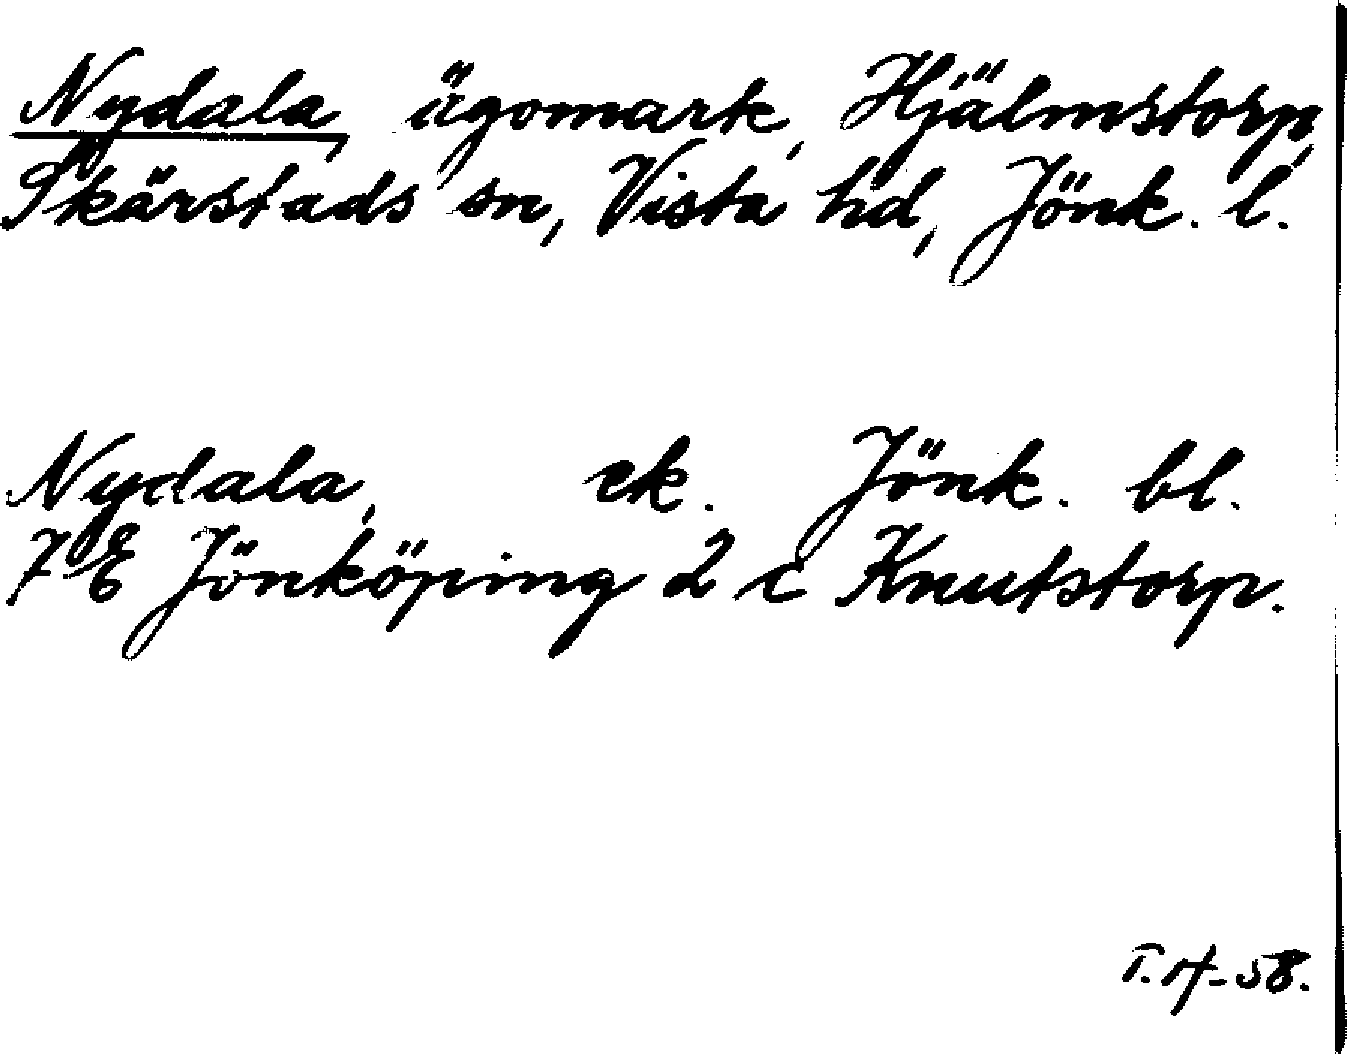 Nydala, ägomark, Hjälmstorp,
Skärstads sn, Vista hd, Jönk. l.
Nydala, ek. Jönk. bl.
7 E Jönköping 2 c Knutstorp.
-58.